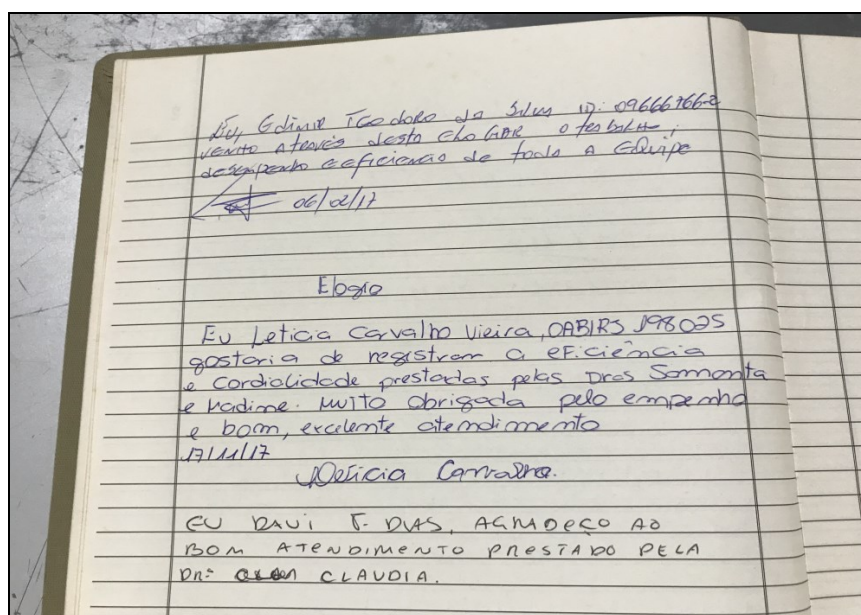 Eu, Edimir Teodoro da Silva ID: 09666766-2
venho através desta elogiar o trabalho,
desempenho e eficiencia de toda a Equipe
06/02/17
Elogio
Eu Leticia Carvalho Vieira, OAB/RS 198025
gostaria de registrar a eficiência
e cordialidade prestadas pelas Dras Samanta
e Nadime. Muito obrigada pelo empenho
e bom, excelente atendimento
17/11/17
Leticia Carvalho.
EU DAVI F. DIAS, AGRADEÇO AO
BOM ATENDIMENTO PRESTADO PELA
DRª CLAUDIA.